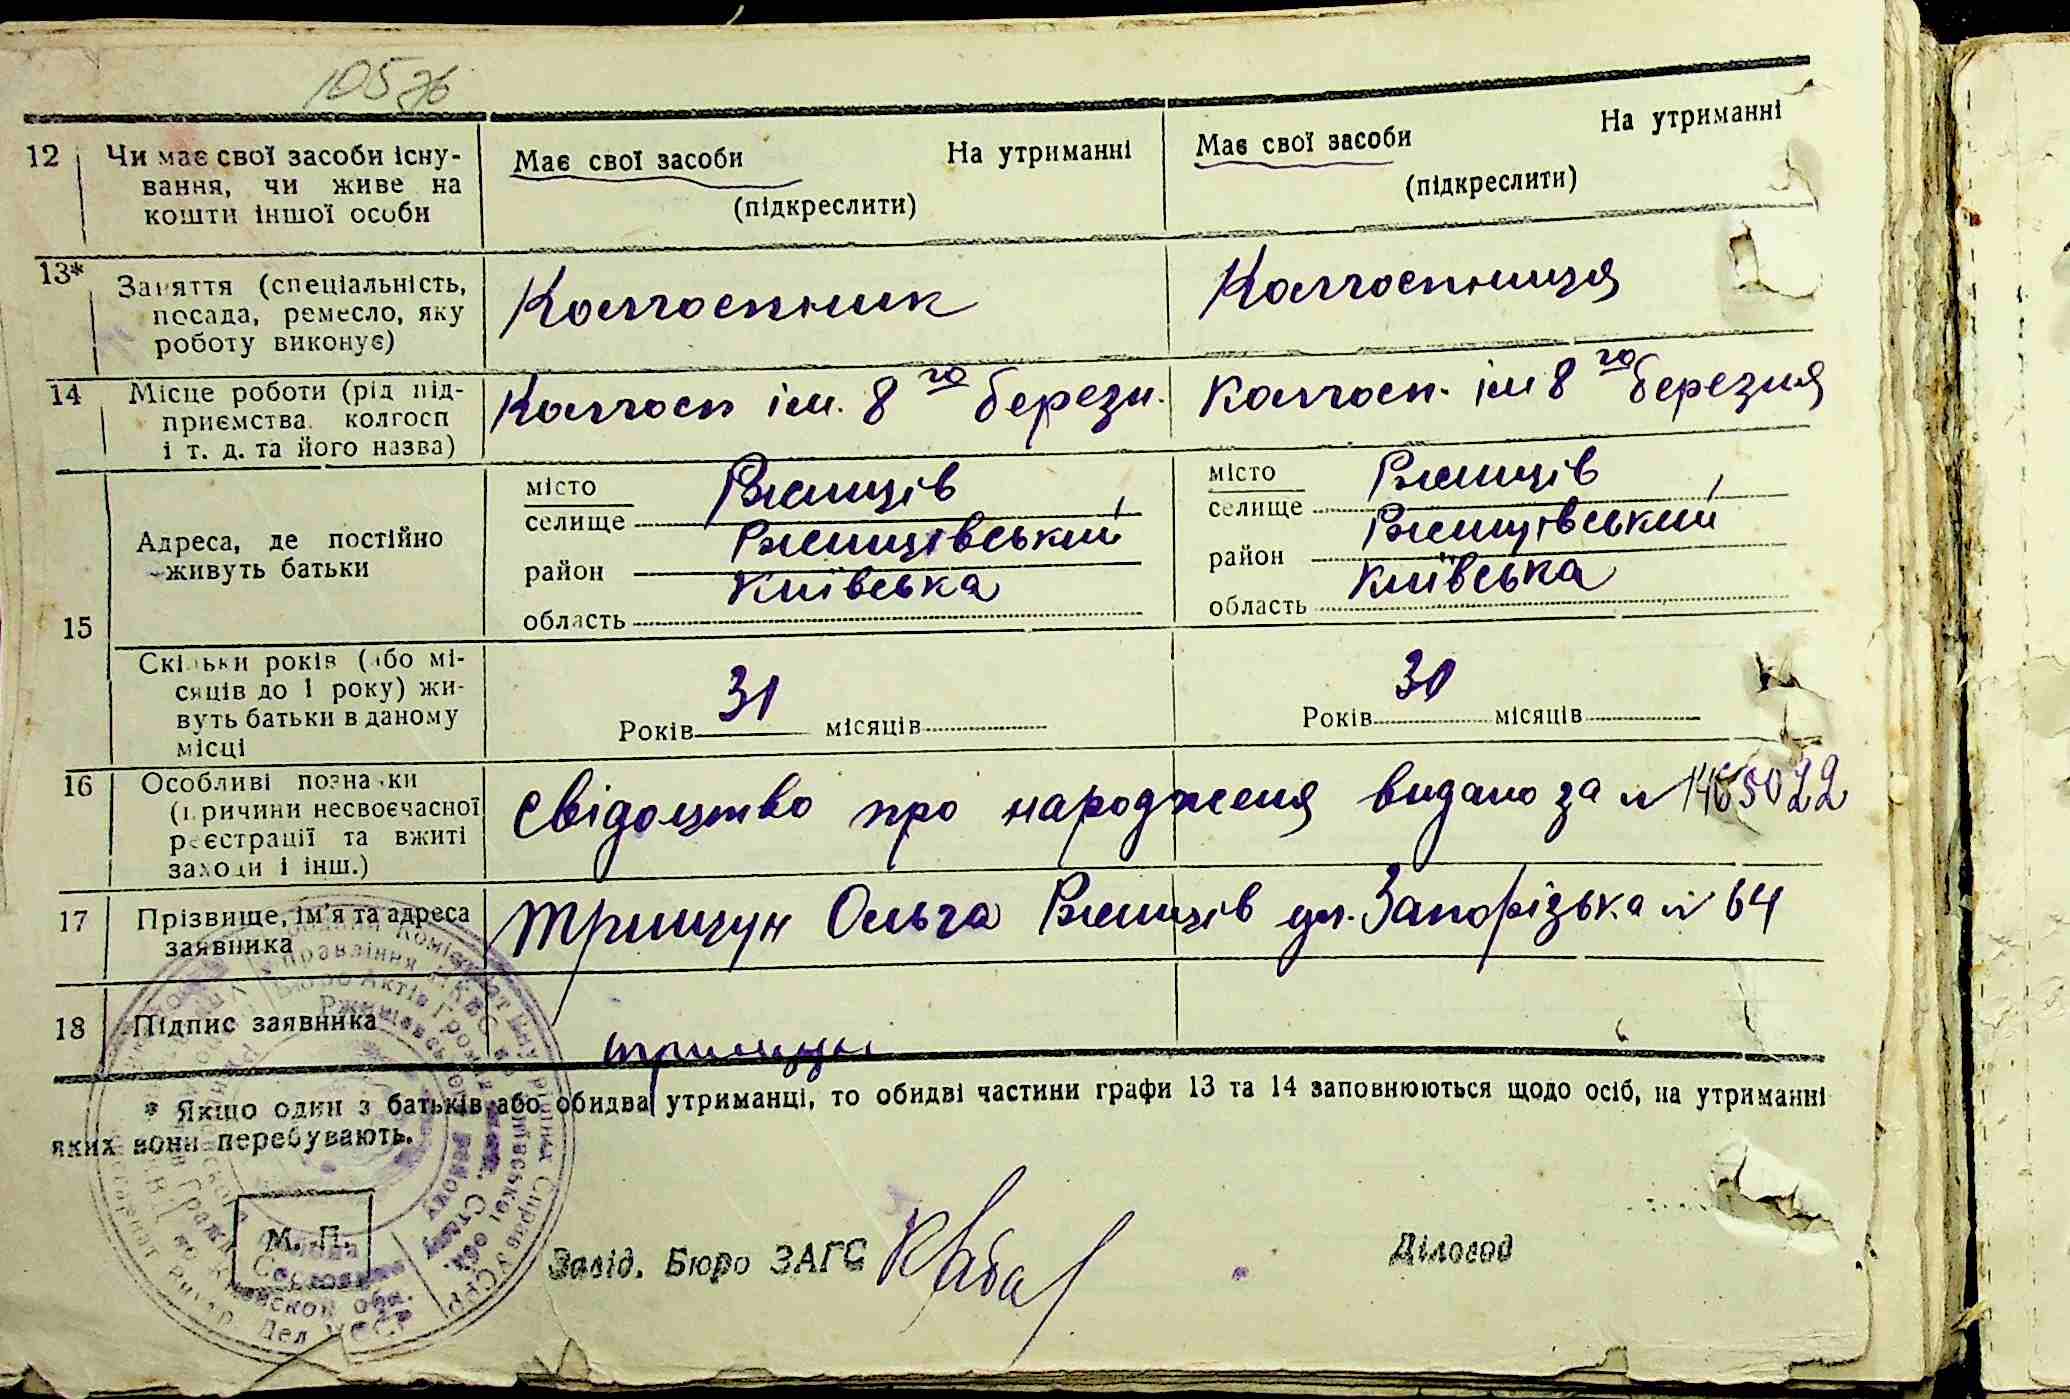 105 зв
12 Чи має свої засоби існу-
вання, чи живе на
кошти іншої особи
Має свої засоби На утриманні
(підкреслити)
Має свої засоби На утриманні
(підкреслити)
13* Заняття (спеціальність,
посада, ремесло, яку
роботу виконує)
Колгоспник
Колгоспниця
14 Місце роботи (рід під-
приємства, колгосп
і т. д. та його назва)
Колгосп ім. 8го березн.
Колгосп. ім 8го березня
15 Адреса, де постійно
живуть батьки
місто
селище Ржищів
район Ржищівський
область Київська
місто
селище Ржищів
район Ржищівський
область Київська
Скільки років (або мі-
сяців до 1 року) жи-
вуть батьки в даному
місці
Років 31 місяців
Років 30 місяців
16 Особливі позначки
(причини несвоєчасної
реєстрації та вжиті
заходи і інш.)
Свідоцтво про народженя видано за №
17 Прізвище, ім'я та адреса
заявника
Трищун Ольга Ржищів ул. Запорізька № 64
18 Підпис заявника
Трищун
* Якщо один з батьків або обидва утриманці, то обидві частини графи 13 та 14 заповнюються щодо осіб, на утриманні
яких вони перебувають.
М. П.
Завід. Бюро ЗАГС
Діловод